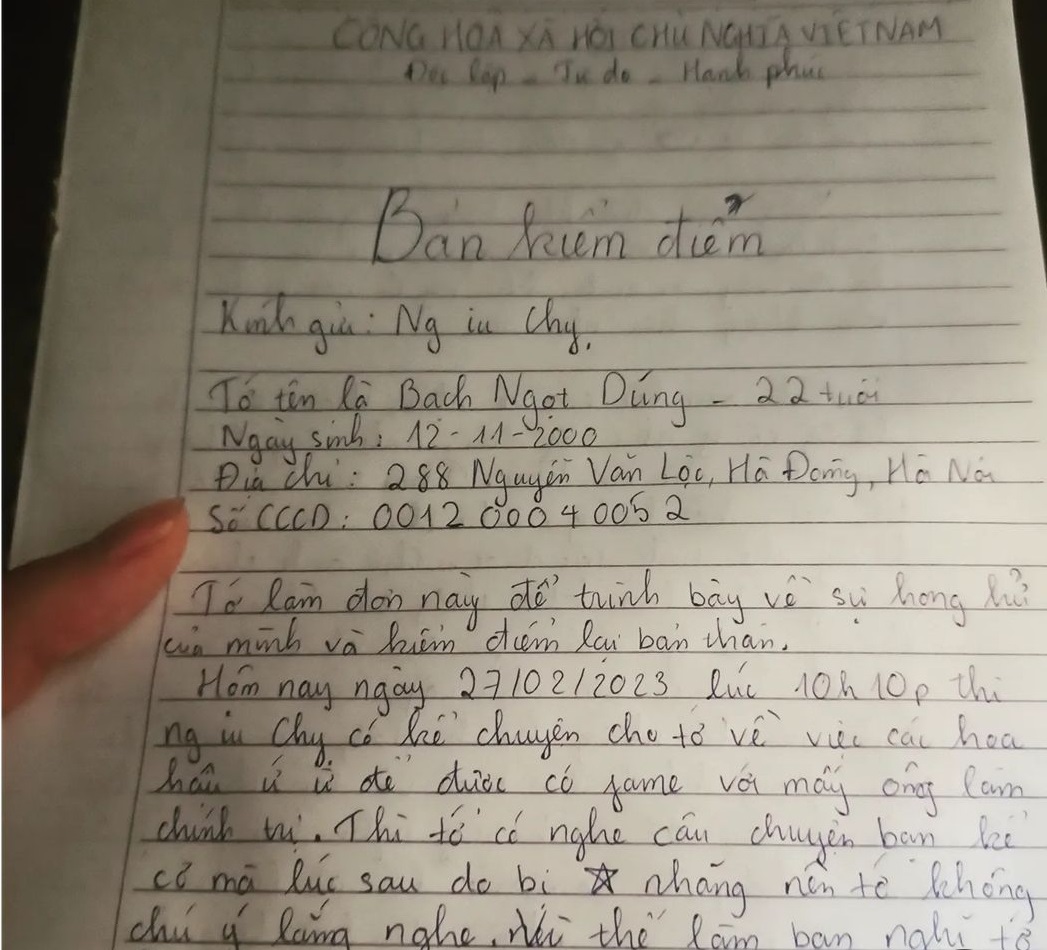 CỘNG HOÀ XÃ HỘI CHỦ NGHĨA VIỆT NAM
Độc lập - Tự do - Hạnh phúc
Bản kiểm điểm
Kính gửi: Ng iu Chy.
Tớ tên là Bạch Ngọt Dúng - 22 tuổi
Ngày sinh: 12-11-2000
Địa chỉ: 288 Nguyễn Văn Lộc, Hà Đông, Hà Nội
Số CCCD: 001200040052
Tớ làm đơn này để trình bày về sự hong hủ
của mình và kiểm điểm lại bản thân.
Hôm nay ngày 27/02/2023 lúc 10h10p thì
ng iu Chy có kể chuyện cho tớ về việc các hoa
hậu ứ ừ để được có fame với mấy ông làm
chính trị. Thì tớ có nghe câu chuyện bạn kể
cơ mà lúc sau do bị nhãng nên tớ không
chú ý lắng nghe. Vì thế làm bạn nghĩ tớ